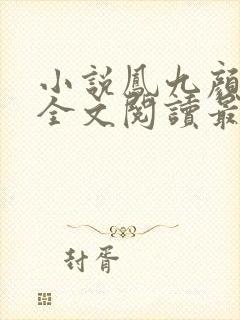 小說鳳九顏
全文閱讀最
封胥